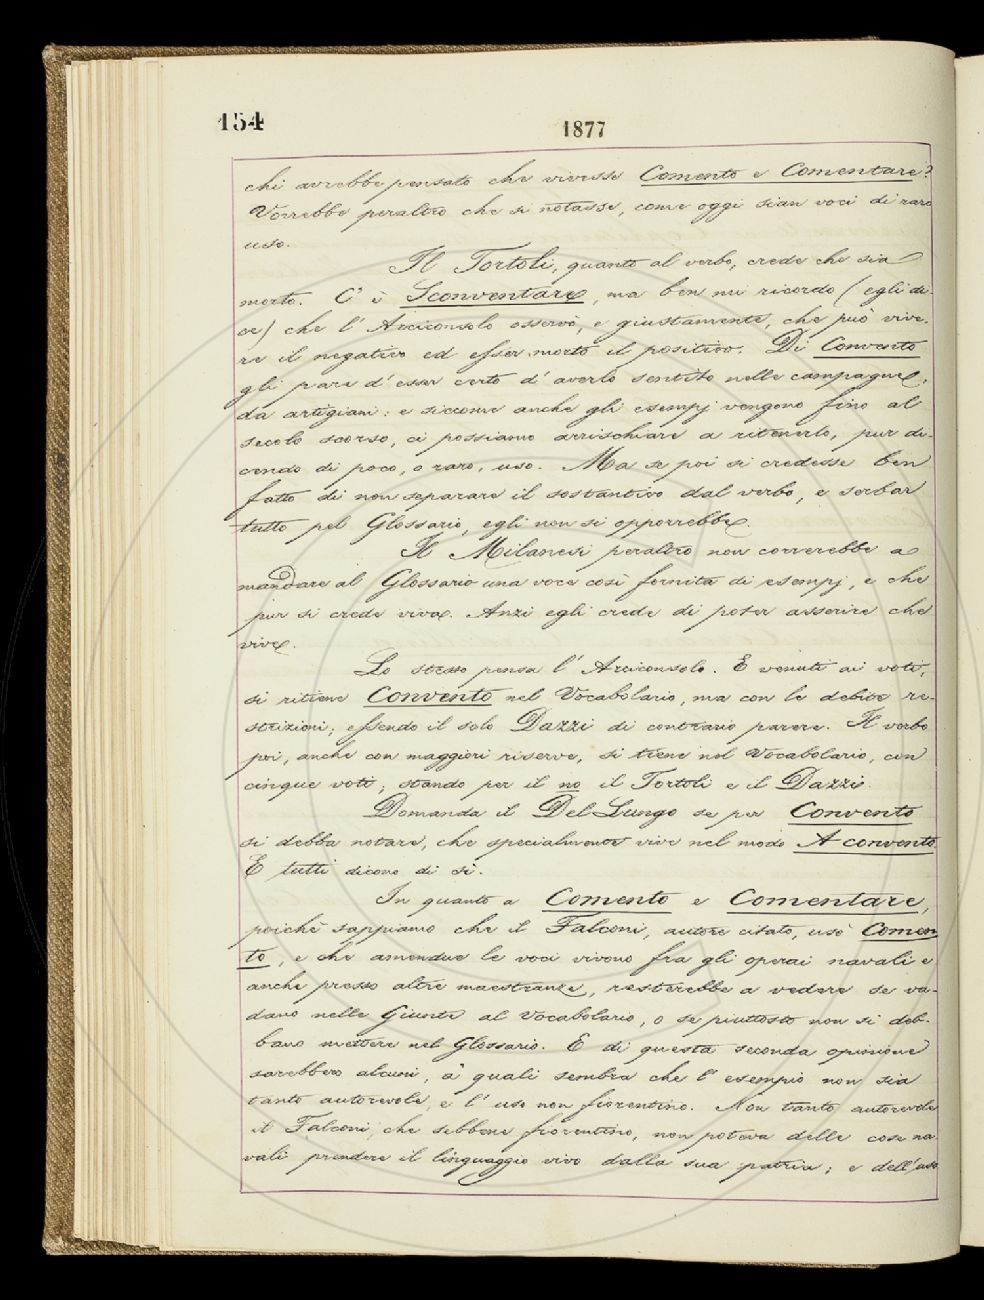 154
1877
chi avrebbe pensato che vivesse Comento e Comentare?
Vorrebbe peraltro che si notasse, come oggi sian voci di raro
uso.
Il Tortoli, quanto al verbo, crede che sia
morto. C'è Sconventare, ma ben mi ricordo (egli di-
ce) che l'Arciconsolo osservò, e giustamente, che può vive-
re il negativo ed esser morto il positivo. Di Convento
gli pare d'esser certo d'averlo sentito nelle campagne,
da artigiani: e siccome anche gli esempj vengono fino al
secolo scorso, ci possiamo arrischiare a ritenerlo, pur di-
cendo di poco, o raro, uso. Ma se poi si credesse ben
fatto di non separare il sostantivo dal verbo, e serbar
tutto pel Glossario, egli non si opporrebbe.
Il Milanesi peraltro non correrebbe a
mandare al Glossario una voce così fornita di esempj, e che
pur si crede viva. Anzi egli crede di poter asserire che
vive.
Lo stesso pensa l'Arciconsolo. E venuti ai voti,
si ritiene Convento nel Vocabolario, ma con le debite re-
strizioni; essendo il solo Dazzi di contrario parere. Il verbo
poi, anche con maggiori riserve, si tiene nel Vocabolario, con
cinque voti, stando per il no il Tortoli e il Dazzi.
Domanda il Del Lungo se per Convento
si debba notare, che specialmente vive nel modo A convento
E tutti dicono di sì.
In quanto a Comento e Comentare,
poichè sappiamo che il Falconi, autore citato, usò Comen
to, e che amendue le voci vivono fra gli operai navali e
anche presso altre maestranze, resterebbe a vedere se va-
dano nelle Giunte al Vocabolario, o se piuttosto non si deb-
bano mettere nel Glossario. E di questa seconda opinione
sarebbero alcuni, a' quali sembra che l'esempio non sia
tanto autorevole, e l'uso non fiorentino. Non tanto autorevole
il Falconi, che sebbene fiorentino, non poteva delle cose na-
vali prendere il linguaggio vivo dalla sua patria; e dell'uso